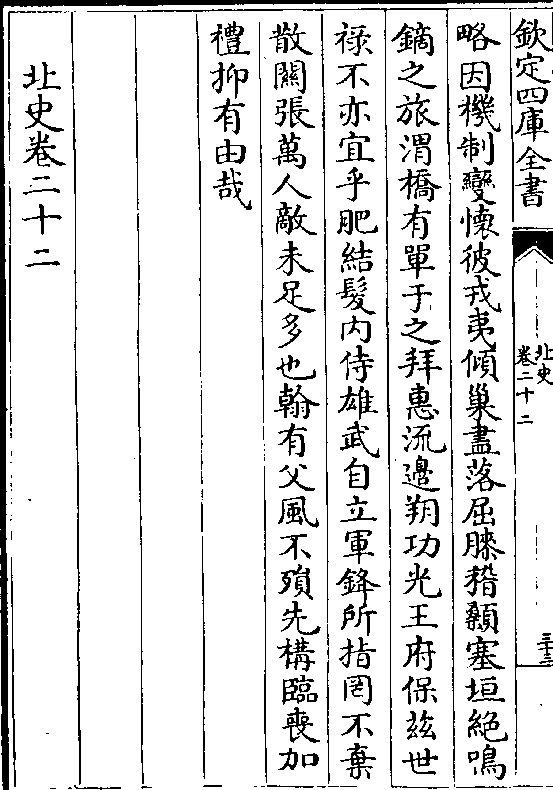 欽定四庫全書
北史
卷二十二
三十三
略因機制變懷彼戎夷傾巢盡落屈膝稽顙塞垣絶鳴
鏑之旅渭橋有單于之拜惠流邊朔功光王府保兹世
禄不亦宜乎肥結髮内侍雄武自立軍鋒所指罔不棄
散關張萬人敵未足多也翰有父風不殞先構臨喪加
禮抑有由哉
北史卷二十二